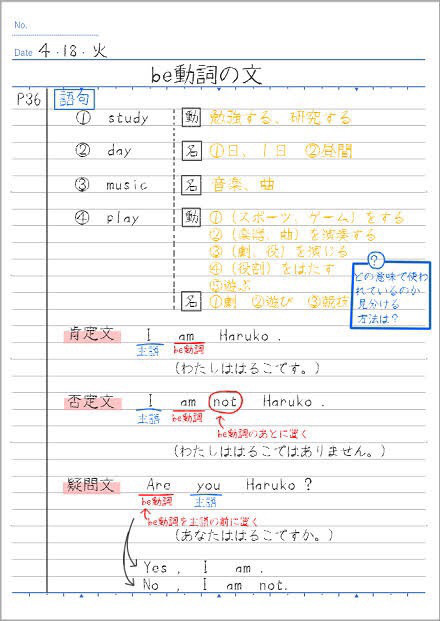 No.
Date 4・18・火
be動詞の文
P36 語句
① study 動 勉強する、研究する
② day 名 ①日、1日 ②昼間
③ music 名 音楽、曲
④ play 動 ①（スポーツ、ゲーム）をする
②（楽器、曲）を演奏する
③（劇、役）を演じる
④（役割）をはたす
⑤遊ぶ
名 ①劇 ②遊び ③競技
?
どの意味で使わ
れているのか
見分ける
方法は？
肯定文 I am Haruko.
主語 be動詞
（わたしははるこです。）
否定文 I am not Haruko.
主語 be動詞
be動詞のあとに置く
（わたしははるこではありません。）
疑問文 Are you Haruko?
be動詞 主語
be動詞を主語の前に置く
（あなたははるこですか。）
Yes, I am.
No, I am not.